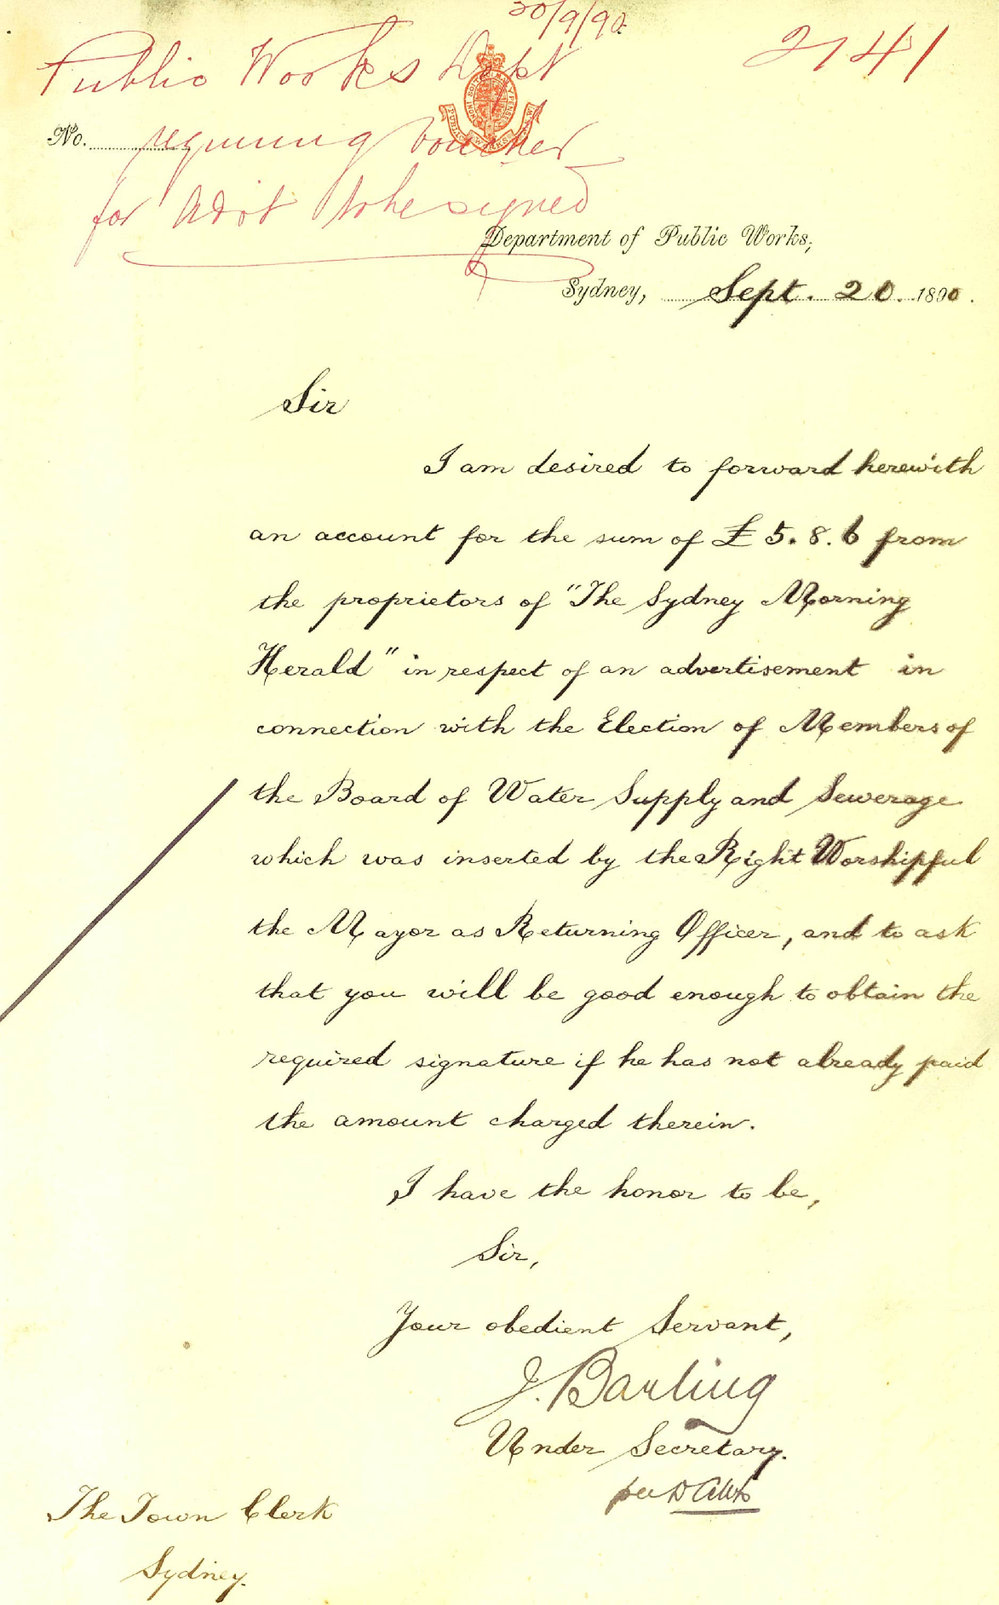 20/9/90
2741
Public Works Dept
No. requiring voucher
for Advt to be signed
Department of Public Works,
Sydney, Sept. 20. 1890.
Sir
I am desired to forward herewith
an account for the sum of £5.8.6 from
the proprietors of "The Sydney Morning
Herald" in respect of an advertisement in
connection with the Election of Members of
the Board of Water Supply and Sewerage
which was inserted by the Right Worshipful
the Mayor as Returning Officer, and to ask
that you will be good enough to obtain the
required signature if he has not already paid
the amount charged therein.
I have the honor to be,
Sir,
Your obedient Servant,
J. Barling
Under Secretary.
per
The Town Clerk
Sydney.